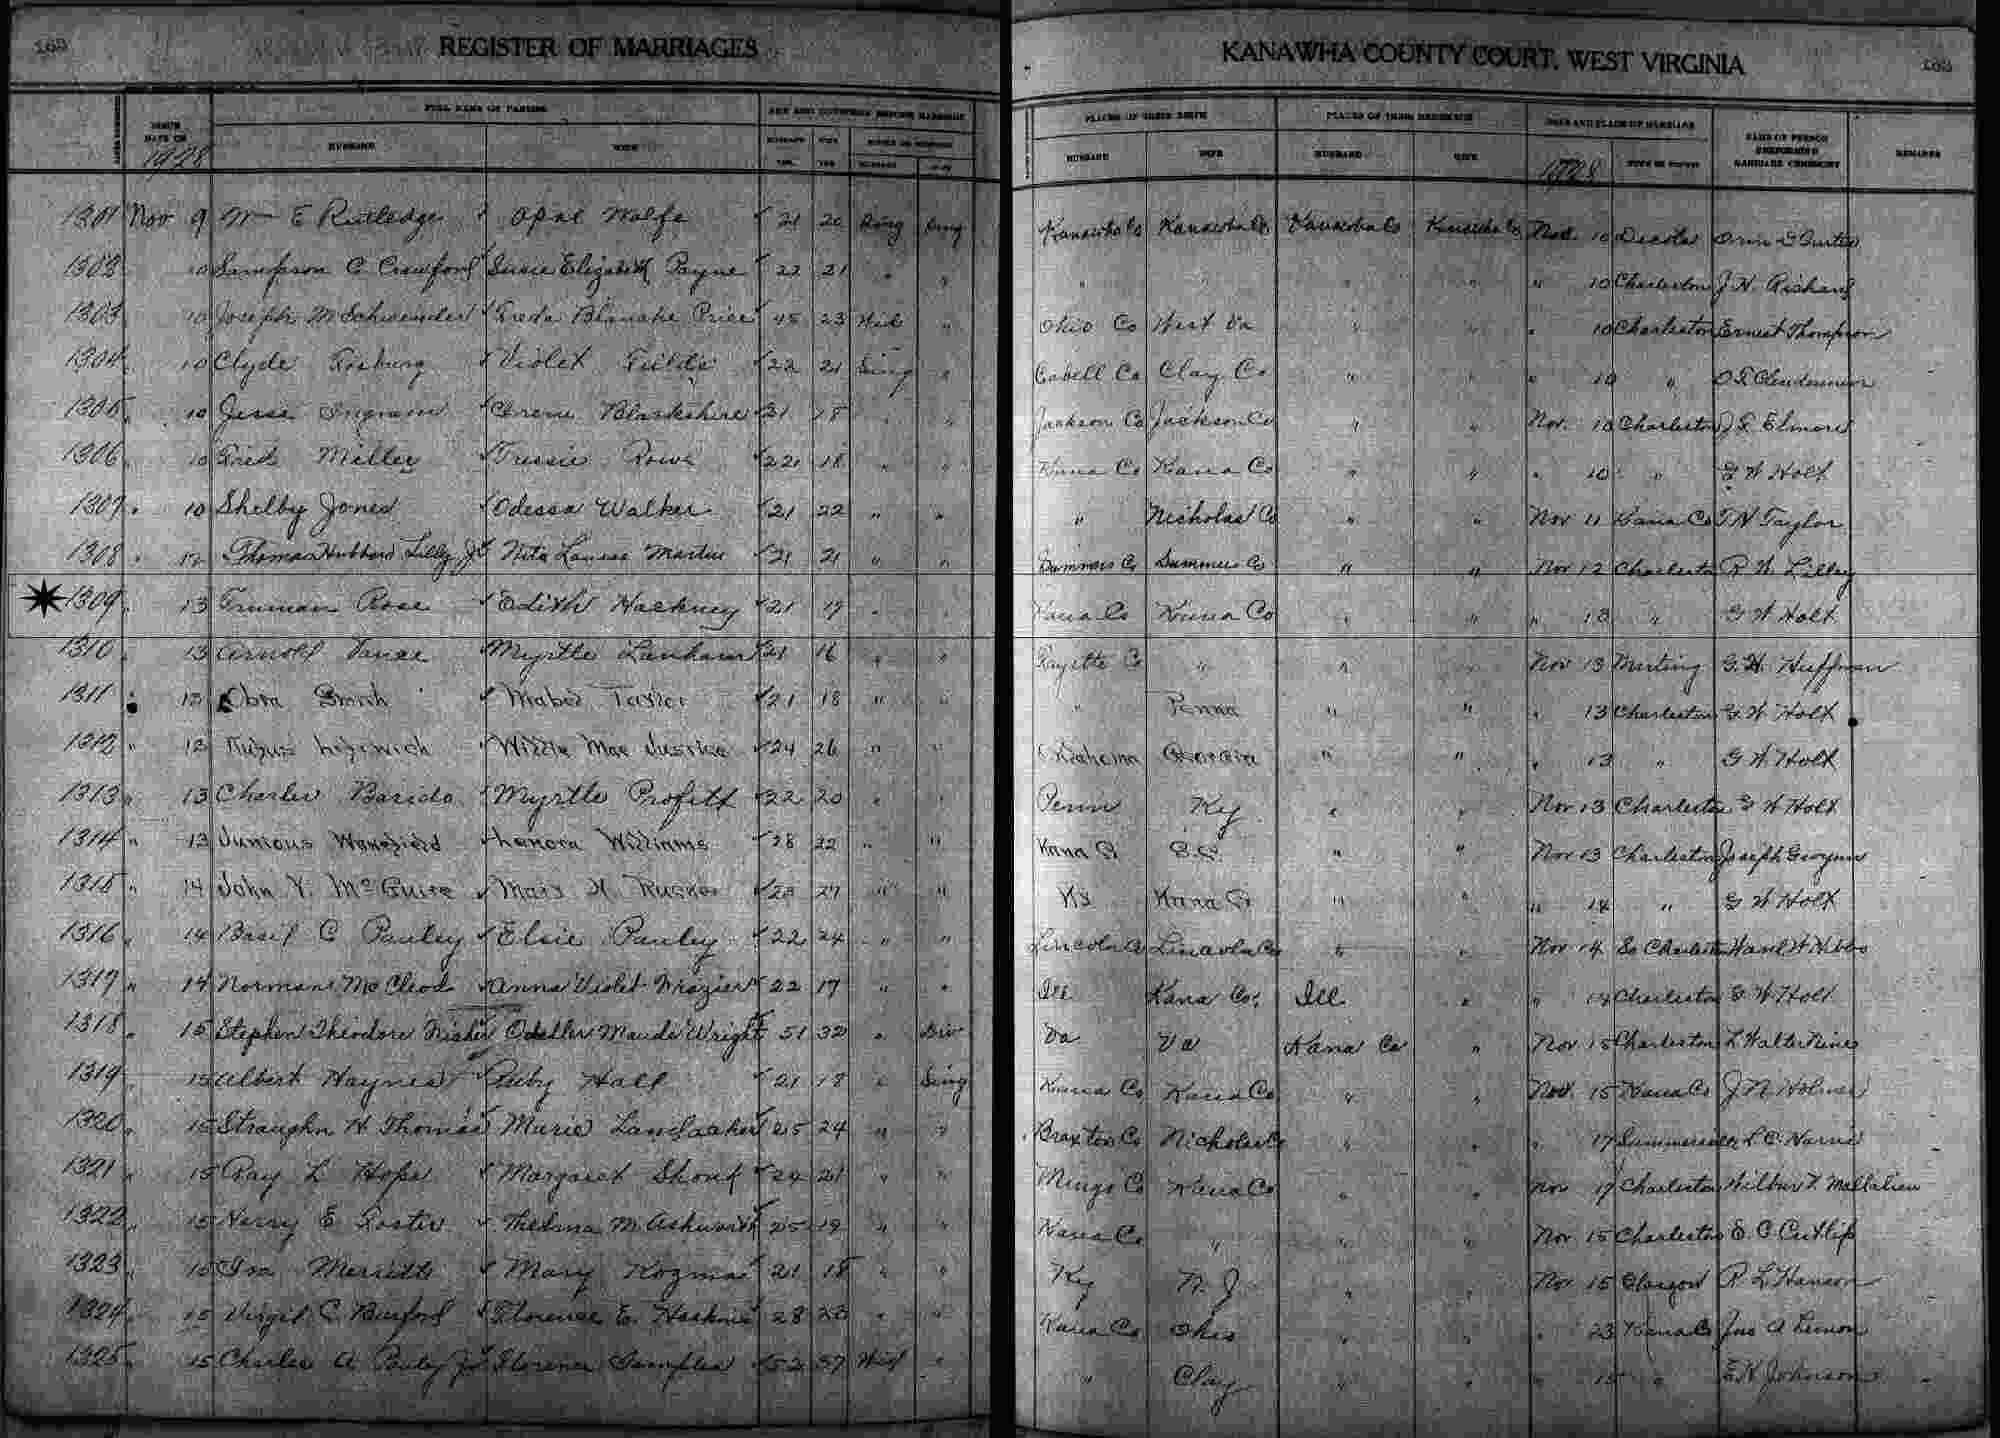 169 REGISTER OF MARRIAGES KANAWHA COUNTY COURT, WEST VIRGINIA
FULL NAME OF PARTIES AGE AND CONDITION BEFORE MARRIAGE PLACES OF THEIR BIRTH PLACES OF THEIR RESIDENCE
DATE OF HUSBAND WIFE HUSBAND WIFE HUSBAND WIFE HUSBAND WIFE NAME OF PERSON PERFORMING MARRIAGE CEREMONY REMARKS
1928 1928
1301 Nov 9 Wm E Rutledge Opal Wolfe 21 20 Sing Sing Kanawha Co Kanawha Co Kanawha Co Kanawha Co Nov 10 Orin G Curtis
1302 10 Sampson C Crawford Susie Elizabeth Payne 22 21 " " " " " " " 10 Charleston J H
1303 10 Joseph M Schwender Greda Blanche Price 45 23 Wid " Ohio Co West Va " " " 10 Charleston Ernest Thompson
1304 " 10 Clyde Violet Fields 22 21 Sing " Cabell Co Clay Co " " " 10 "
1305 " 10 Jesse Ingram Irene Blankshire 21 18 " " Jackson Co Jackson Co " " Nov. 10 Charleston J F Elmore
1306 " 10 Fred Miller Tressie Rowe 22 18 " " Kana Co Kana Co " " " 10 " G W Holt
1307 " 10 Shelby Jones Odessa Walker 21 22 " " " Nicholas Co " " Nov 11 Kana Co T H Taylor
1308 " 12 Thomas Hubbard Lilly Jr Nita Louise Martin 21 21 " " Summers Co Summers Co " " Nov 12 Charleston R W Lilley
1309 " 13 Truman Rose Edith Hackney 21 17 " " Kana Co Kana Co " " " 13 " G W Holt
1310 " 13 Arnold Vance Myrtle Lanham 21 16 " " Fayette Co " " " Nov 13 G. H. Huffman
1311 13 Smith Mabel 21 18 " " " Penna " " " 13 Charleston G W Holt
1312 " 13 Rufus Leftwich Willie Mae Justice 24 26 " " " " " 13 " G W Holt
1313 " 13 Charles Myrtle Profitt 22 20 " " Penn Ky " " Nov 13 Charleston G W Holt
1314 " 13 Junious Lenora Williams 28 22 " " Kana Co S.C. " " Nov 13 Charleston Joseph Gwynn
1315 " 14 John V. McGuire 27 " " Kana Co " " " 14 " G W Holt
1316 " 14 Basil C Pauley Elsie Pauley 22 24 " " Lincoln Co Lincoln Co " " Nov 14 So Charleston
1317 " 14 Norman McCleod Anna Violet Frazier 22 17 " " Ill Kana Co. Ill " " 14 Charleston G W Holt
1318 " 15 Stephen Theodore Maude Wright 51 32 " Div Va Va Kana Co " Nov 15 Charleston L Walter
1319 " 15 Albert Haynes Ruby Hall 21 18 " Sing Kana Co Kana Co " " Nov. 15 Kana Co J N Holmes
1320 " 15 Straughn H Thomas Marie 25 24 " " Braxton Co Nicholas Co " " " 17 Summersville L C Harris
1321 " 15 Ray L Hope Margaret Shonk 24 21 " " Mingo Co Kana Co " " Nov 17 Charleston Wilbur V. Mallalieu
1322 " 15 Harry E Foster Thelma M. Ashworth 25 19 " " Kana Co " " " Nov 15 Charleston E. C Cutlip
1323 " 15 Ira Merritt Mary Kozma 21 18 " " Ky N. J " " Nov 15 Glasgow R L Hanson
1324 " 15 Virgil C Burford Florence E. Haskins 28 " " Kana Co Ohio " " " 23 Kana Co Jno A Lemon
1325 " 15 Charles A Jr Florence Samples 52 37 Wid " " Clay " " " 15 " E K Johnson